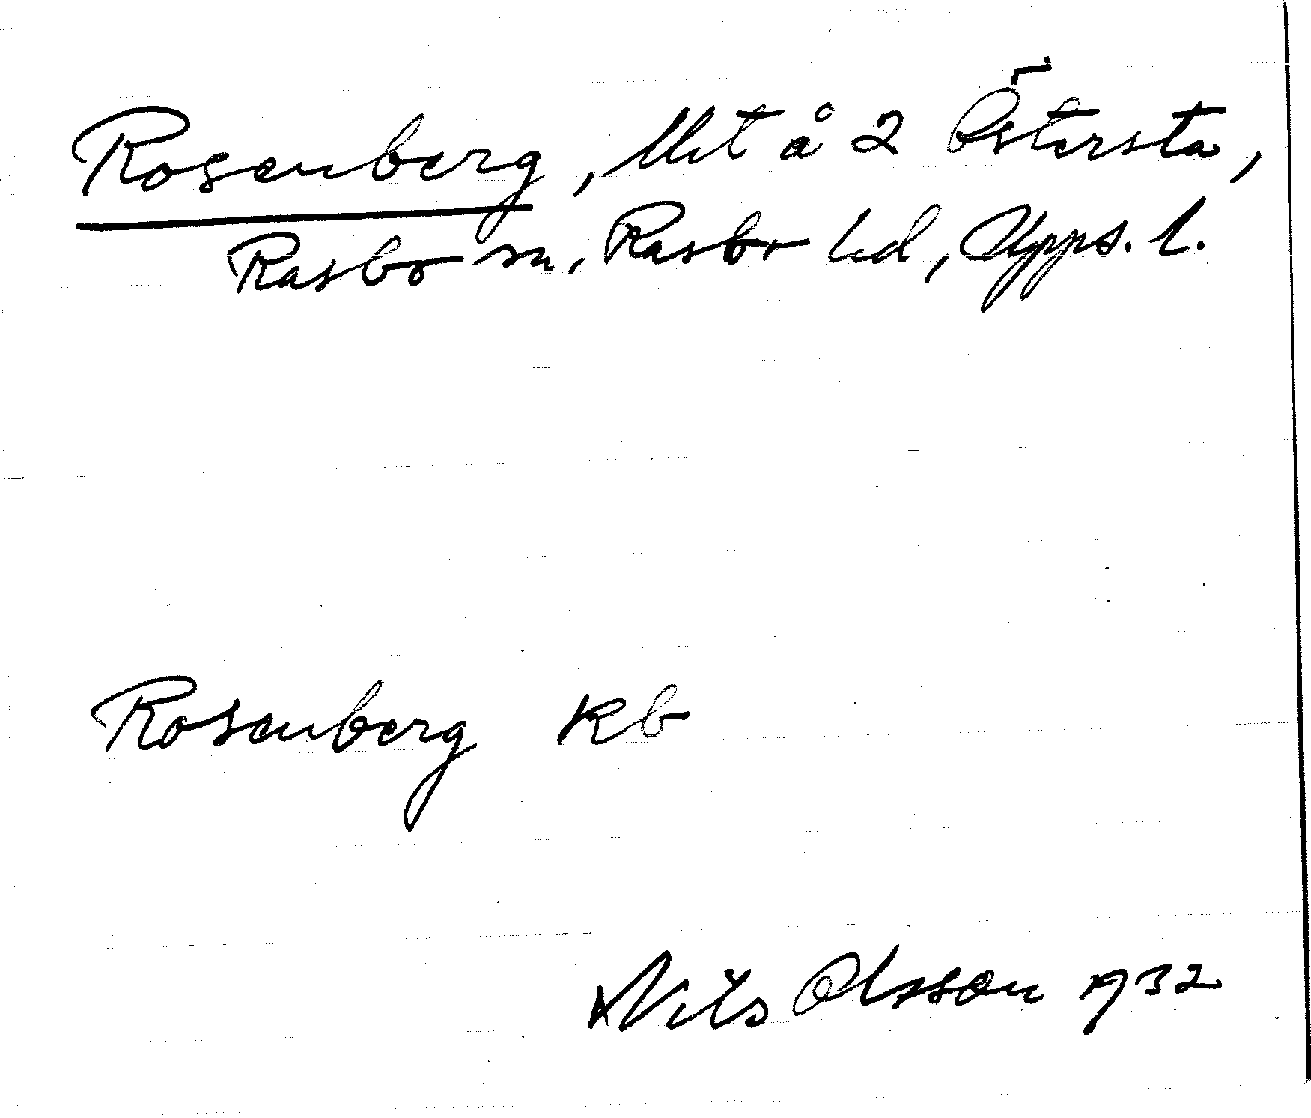 Rosenberg, Utt å 2 Östersta,
Rasbo sn, Rasbo hd, Upps. l.
Rosenberg kb
Nils Olsson 1932